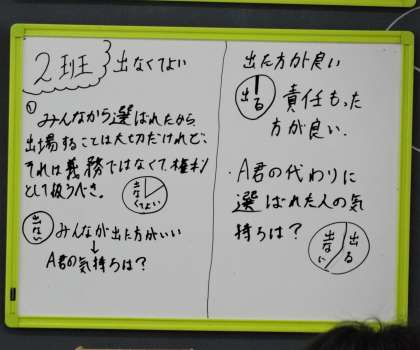 2班
出なくてよい
①
みんなから選ばれたから
出場することは大切だけれど、
それは義務ではなくて、権利
として扱うべき。
出なくてよい
出ない
みんなが出た方がいい
↓
A君の気持ちは?
出た方が良い
出る
責任もった
方が良い.
・A君の代わりに
選ばれた人の気
持ちは?
出ない
出る